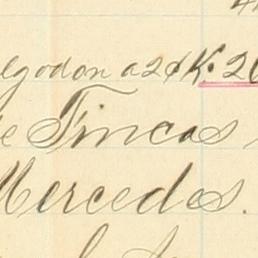 lgodon a 2¢ K. 20
e Fincas
Mercedes.